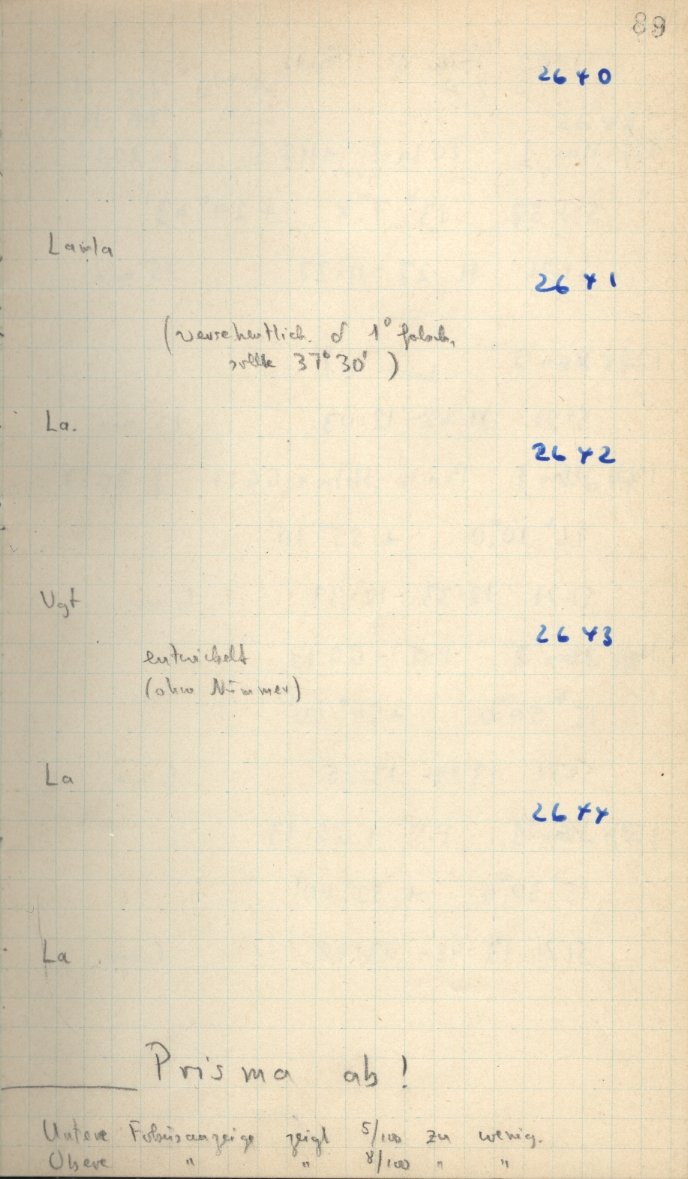 89
2640
Lamla
2641
(versehentlich δ 1° falsch,
sollte 37° 30')
La.
2642
Vgt
2643
entwickelt
(ohne Nummer)
La
2644
La
Prisma ab!
Untere Fokusanzeige zeigt 5/100 zu wenig.
Obere " " 8/100 " "